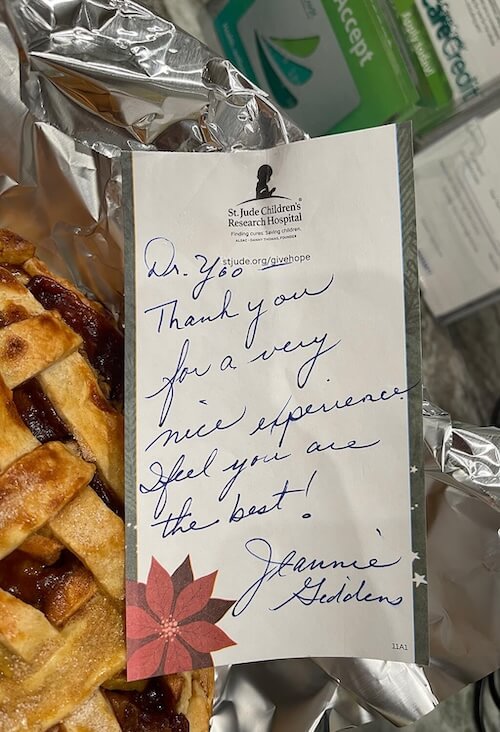 Accept
CareCredit
Apply today!
St. Jude Children's
Research Hospital
Finding cures. Saving children.
ALSAC • DANNY THOMAS, FOUNDER
stjude.org/givehope
Dr. Yoo
Thank you
for a very
nice experience
I feel you are
the best!
Jeannie
Giddens
11A1